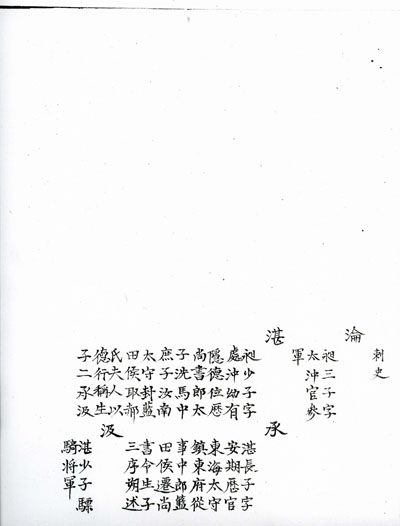 刺史
淪
昶三子字
太沖官參
軍
湛
昶少子字
處沖幼有
隱德位歷
尚書郎太
子洗馬中
庶子汝南
太守封藍
田侯取郝
氏夫人以
德行稱生
子二承汲
承
湛長子字
安期歷官
東海太守
鎮東府從
事中郎藍
田侯遷尚
書令生子
三序朔述
汲
湛少子驃
騎將軍